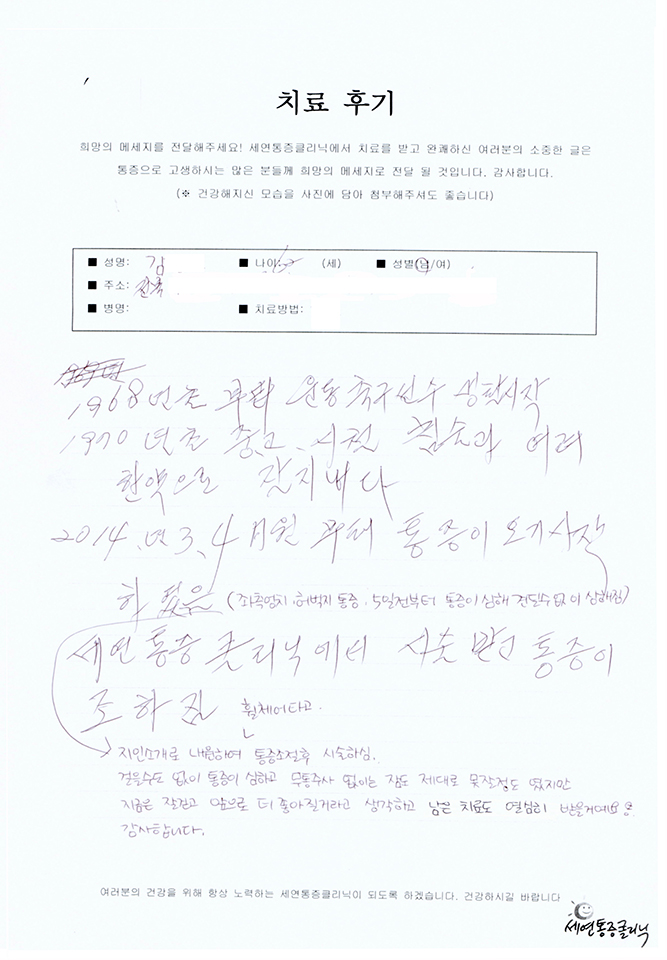 치료 후기
희망의 메세지를 전달해주세요! 세연통증클리닉에서 치료를 받고 완쾌하신 여러분의 소중한 글은
통증으로 고생하시는 많은 분들께 희망의 메세지로 전달 될 것입니다. 감사합니다.
(※ 건강해지신 모습을 사진에 담아 첨부해주셔도 좋습니다)
■ 성명: 김 ■ 나이: (세) ■ 성별(남/여)
■ 주소: 전북
■ 병명: ■ 치료방법:
1968년 운동 축구선수 생활시작
1970년 중고, 시절 침술과 여러
한약으로 잘지내다
2014.년 3, 4月월 부터 통증이 오기시작
하였음 (좌측엉치, 허벅지 통증, 5일전부터 통증이 심해 견딜수 없이 심해짐)
세연통증클리닉에서 시술 받고 통증이
조하짐 휠체어타고.
지인소개로 내원하여 통증조절후 시술하심.
걸을수도 없이 통증이 심하고 무통주사 없이는 잠도 제대로 못잘정도 였지만
지금은 잘걷고 앞으로 더 좋아질거라고 생각하고 남은 치료도 열심히 받을거예요
감사합니다.
여러분의 건강을 위해 항상 노력하는 세연통증클리닉이 되도록 하겠습니다. 건강하시길 바랍니다
세연통증클리닉